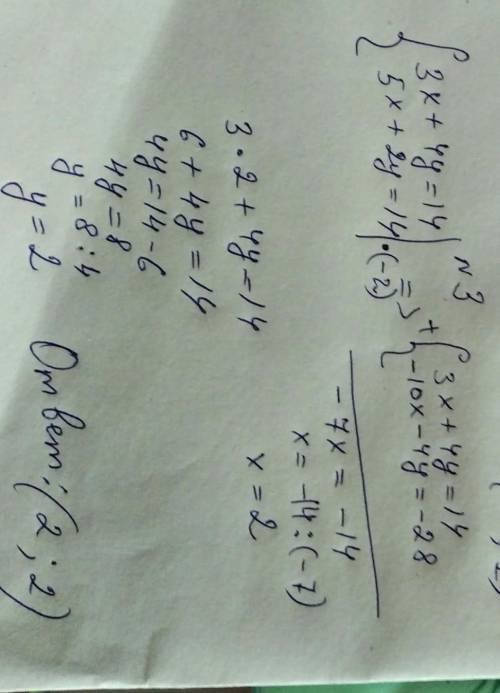 №3
{ 3x + 4y = 14
{ 5x + 2y = 14 | · (-2) => + { 3x + 4y = 14
{ -10x - 4y = -28
-7x = -14
x = -14 : (-7)
x = 2
3 · 2 + 4y = 14
6 + 4y = 14
4y = 14 - 6
4y = 8
y = 8 : 4
y = 2
Ответ: (2 ; 2)